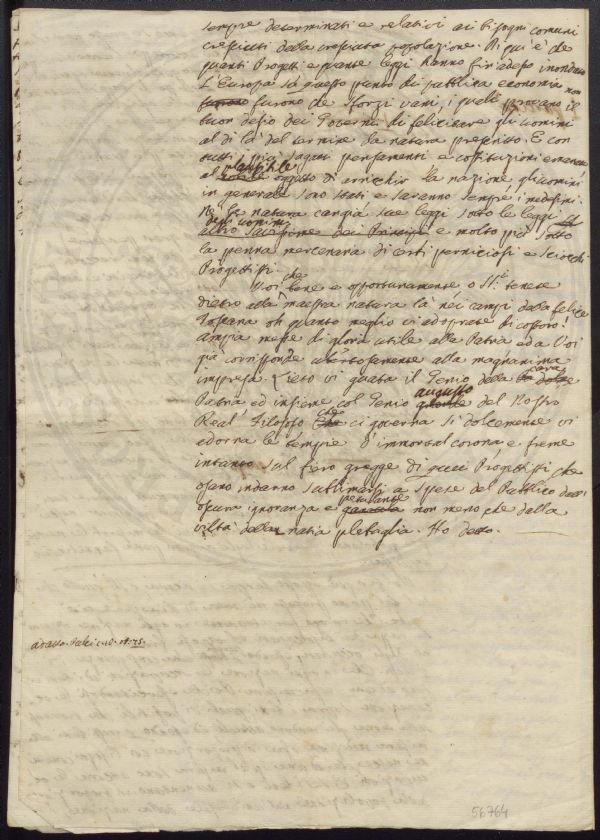 sempre determinati e relativi ai bisogni comuni
cresciuti dalla cresciuta popolazione. Di qui è che
quanti Progetti e quante leggi hanno fin'adesso inondato
L'Europa su questo punto di pubblica economia non
furono che sforzi vani, i quali provano il
buon desio dei Governi di felicitare gli uomini
al di là del termine da natura prescritto. E con
tutti i più pensamenti e costituzioni emanate
al plausibile oggetto di arricchir la nazione, gli uomini
in generale sono stati e saranno sempre i medesimi.
Ne la natura cangia sue leggi sotto le leggi
degli uomini
dei Principi e molto più sotto
la penna mercenaria di certi perniciosi e sciocchi
Progettisti.
Voi che bene e opportunamente o SS.i tenete
dietro alla maestra natura là nei campi della felice
Toscana oh quanto meglio vi adoprate di costoro!
Ampia messe di gloria utile alla Patria ed a Voi
già corrisponde ubertosamente alla magnanima
impresa. Lieto vi guata il Genio della cara
Patria ed insieme col Genio augusto del Nostro
Real Filosofo che ci governa sì dolcemente vi
adorna le tempie d'immortal corona e freme
intanto sul fiero gregge di quei Progettisti che
osano indarno sublimarsi a spese del Pubblico dall'
oscura ignoranza e petulante non meno che dalla
viltà della natia plebaglia. Ho detto.
56764